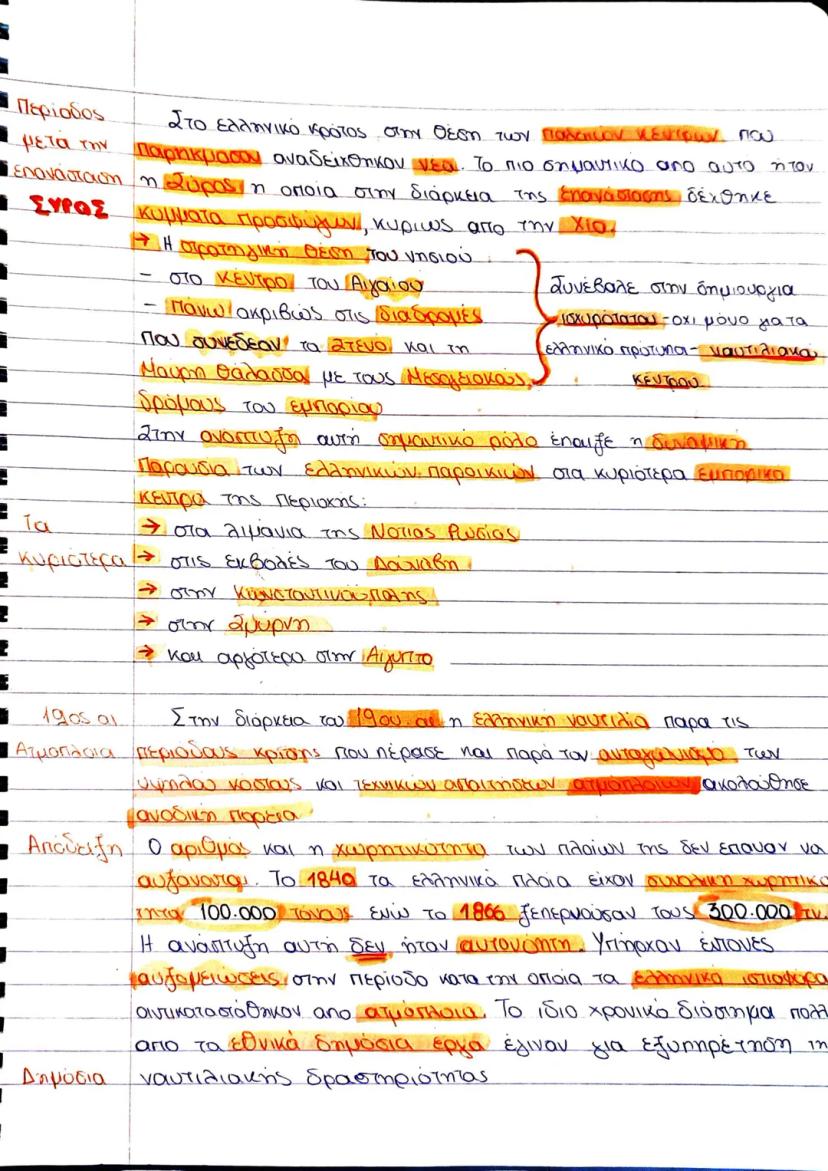 Περίοδος
μετά την
επανάσταση
ΣΥΡΟΣ
Στο ελληνικό κράτος στην θέση των παλαιών κέντρων που
παρήκμασαν αναδείχθηκαν νέα. Το πιο σημαντικό από αυτά ήταν
η Σύρος, η οποία στην διάρκεια της επανάστασης δέχθηκε
κύμματα προσφύγων, κυρίως από την Χίο.
→ Η στρατηγική θέση του νησιού
- στο κέντρο του Αιγαίου
- πάνω ακριβώς στις διαδρομές
που συνέδεαν τα Στενά και τη
Μαύρη Θάλασσα με τους Μεσογειακούς
δρόμους του εμπορίου
Συνέβαλε στην δημιουργία
ισχυρότατου - όχι μόνο για τα
ελληνικά πρότυπα - ναυτιλιακού
κέντρου.
Στην ανάπτυξη αυτή σημαντικό ρόλο έπαιξε η δυναμική
παρουσία των ελληνικών παροικιών στα κυριότερα εμπορικά
κέντρα της περιοχής:
Τα
κυριότερα
→ στα λιμάνια της Νότιας Ρωσίας
→ στις εκβολές του Δούναβη
→ στην Κωνσταντινούπολης
→ στην Σμύρνη
→ και αργότερα στην Αίγυπτο
19ος αι
Ατμόπλοια
Στην διάρκεια του 19ου αι η ελληνική ναυτιλία παρά τις
περιόδους κρίσης που πέρασε και παρά τον ανταγωνισμό των
υψηλού κόστους και τεχνικών απαιτήσεων ατμόπλοιων ακολούθησε
ανοδική πορεία
Απόδειξη
Ο αριθμός και η χωρητικότητα των πλοίων της δεν έπαυαν να
αυξάνονται. Το 1840 τα ελληνικά πλοία είχαν συνολική χωρητικό
τητα 100.000 τόνους ενώ το 1866 ξεπερνούσαν τους 300.000 τν.
Η ανάπτυξη αυτή δεν ήταν αυτονόητη. Υπήρχαν έντονες
αυξομειώσεις στην περίοδο κατά την οποία τα ελληνικά ιστιοφόρα
αντικαταστάθηκαν από ατμόπλοια. Το ίδιο χρονικό διάστημα πολλ
από τα εθνικά δημόσια έργα έγιναν για εξυπηρέτηση τη
Δημόσια
ναυτιλιακής δραστηριότητας